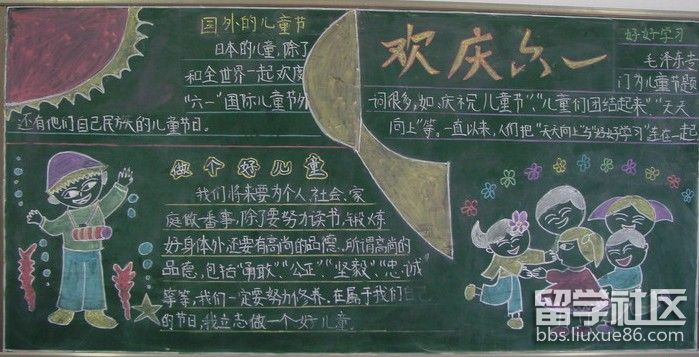 国外的儿童节
日本的儿童，除了
和全世界一起欢度
“六一”国际儿童节外
还有他们自己民族的儿童节日。
欢庆六一
好好学习
毛泽东专
门为儿童节题
词很多，如，庆祝儿童节”，“儿童们团结起来”，“天天
向上”等。一直以来，人们把“天天向上”与“好好学习”连在一起
做个好儿童
我们将来要为个人、社会、家
庭做番事，除了要努力读书，锻炼
好身体外还要有高尚的品德，所谓高尚的
品德，包括“勇敢”“公正”“坚毅”“忠诚
等等，我们一定要努力修养，在属于我们自
的节日，我立志做一个好儿童
留学社区
bbs.liuxue86.com